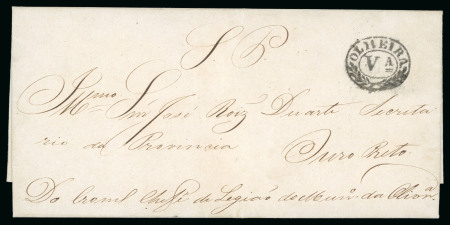 S. P.
OLIVEIRA
V A
Illmo Snr José Roiz Duarte Secreta
rio da Provincia
Ouro Preto
Do Coronel Chefe de Legião do Mun. da Oliva